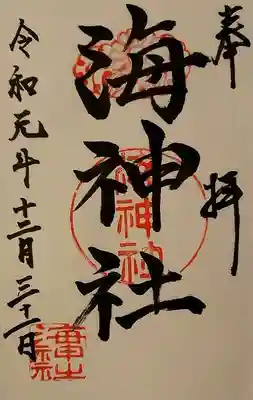 奉拝
海神社
海神社
令和元年十二月三十一日